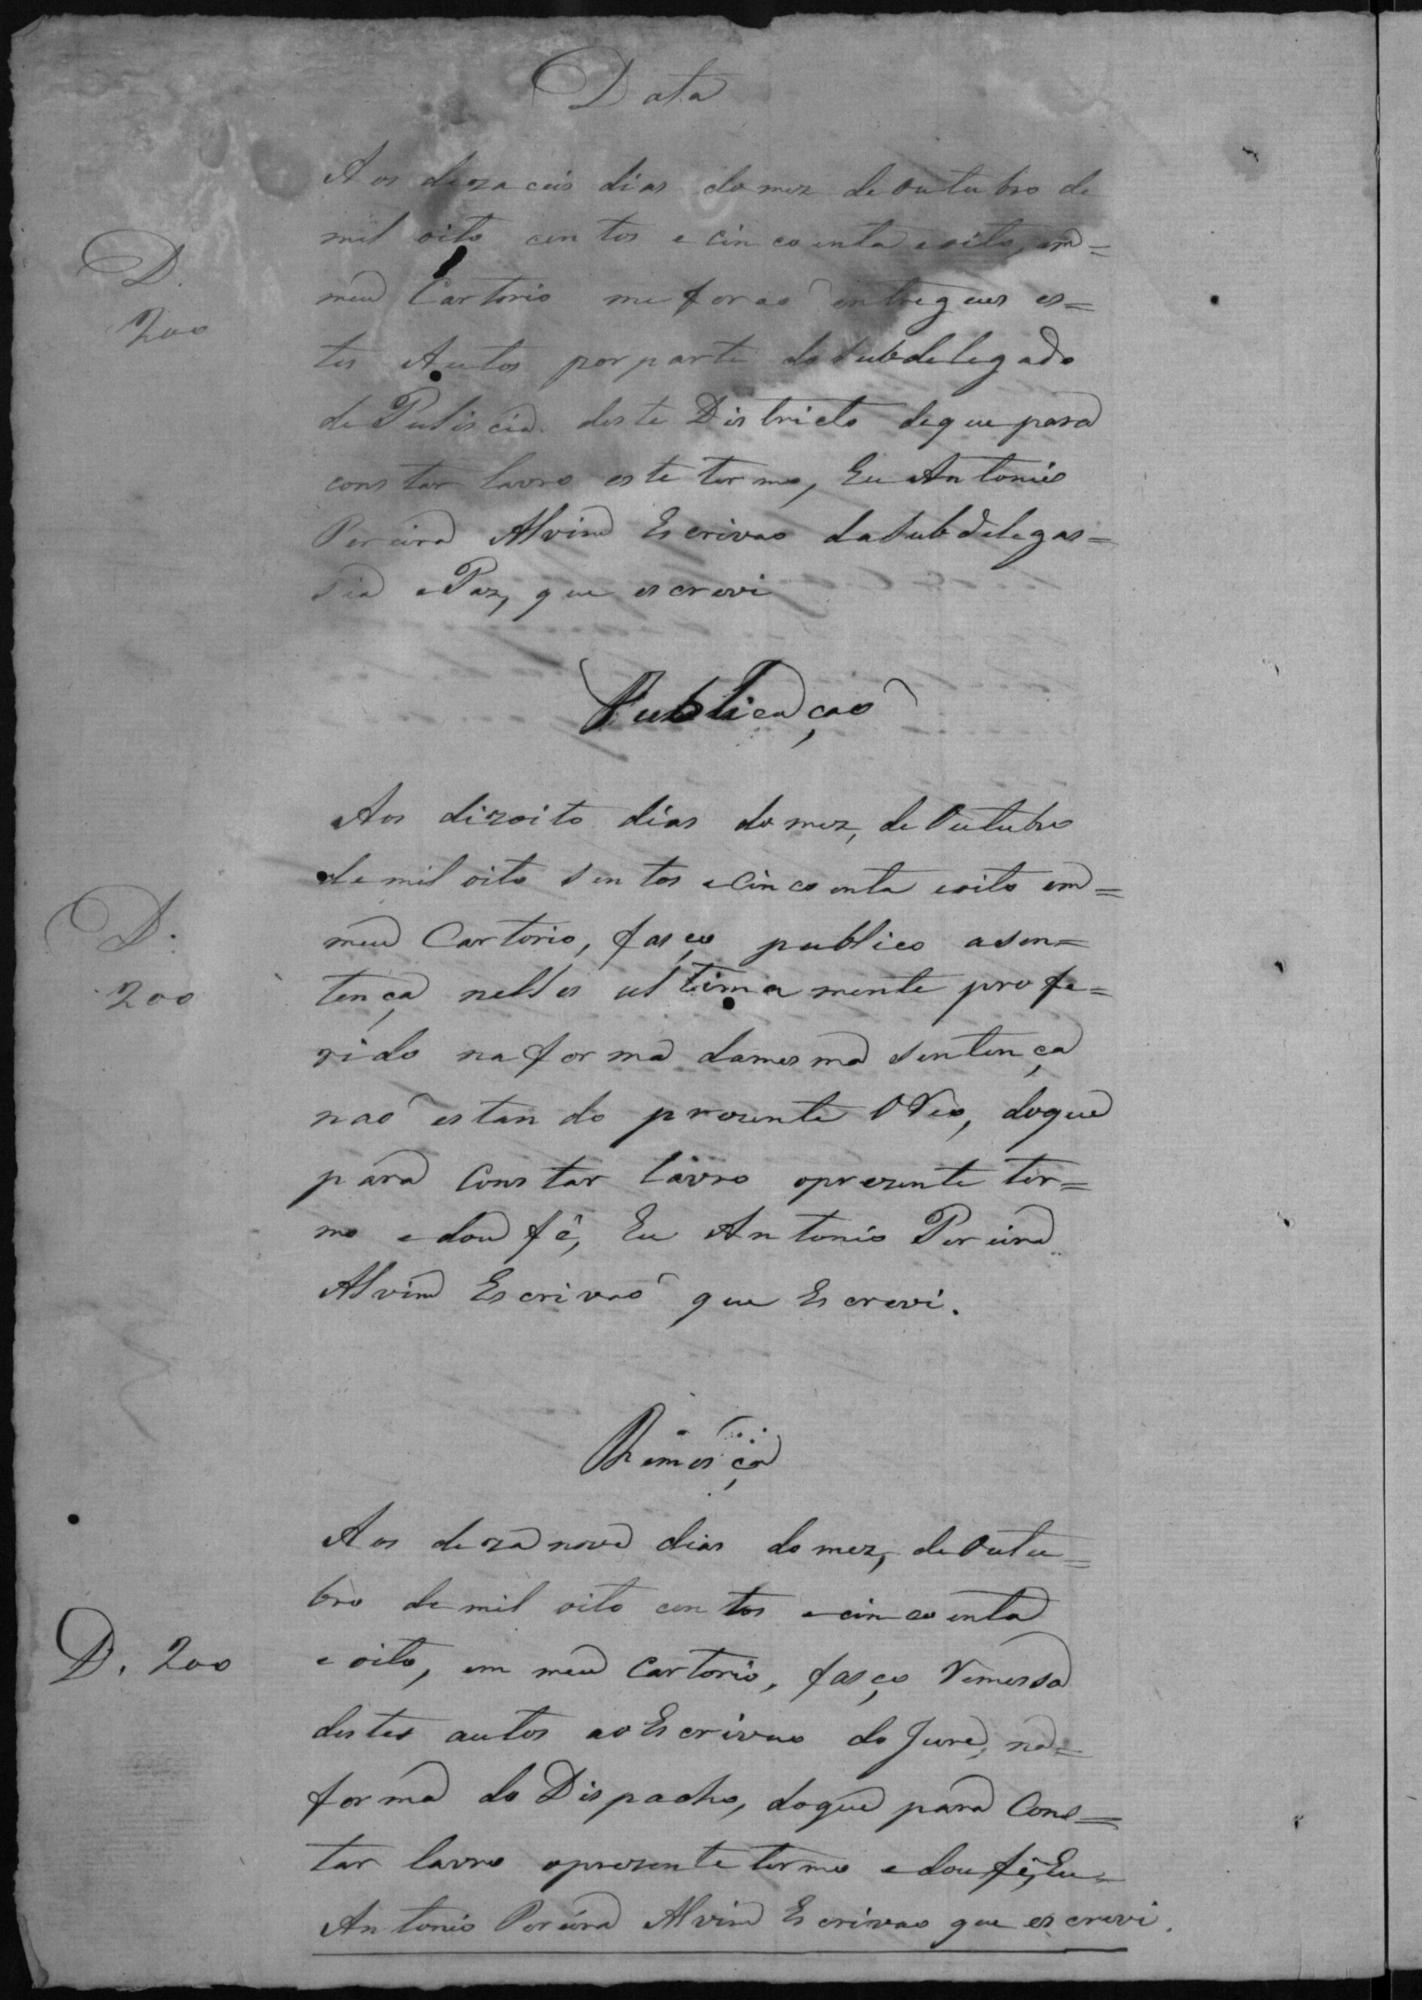 Data
Aos dezaceis dias do mez de Outubro de
mil oito centos e cincoenta e oito, em=
meu Cartorio me forao entregues es=
tes Autos por parte do Subdelegado
D.
200
de Puliscia deste Districto de que para
constar lavro este termo, Eu Antonio
Pereira Alvim Escrivao da Subdelegas=
sia e Paz, que escrevi
Publicaçaõ
Aos dizoito dias do mez, de Outubro
de mil oito sentos e cincoenta e oito em=
meu Cartorio, fasço publico a sen=
tença nelles ultimamente profe=
D.
200
rido na forma da mesma sentença
naõ estando prezente o Reo, do que
para Constar lavro o prezente ter=
mo e dou fê, Eu Antonio Pereira
Alvim Escrivaõ que Escrevi.
Remesça
Aos dezanove dias do mez, de Outu=
bro de mil oito centos e cincoenta
D. 200
e oito, em meu Cartorio, fasço Remessa
destes autos ao Escrivao do Jure, na=
forma do Dispacho, do que para Cons=
tar lavro o prezente termo e dou fê, Eu=
Antonio Pereira Alvim Escrivao que escrevi.